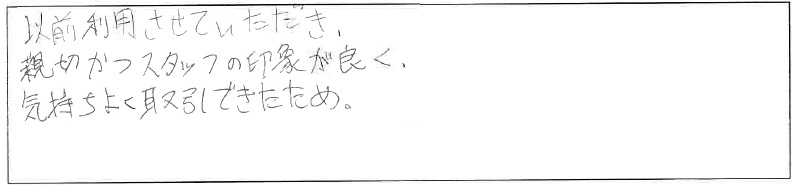 以前利用させていただき、
親切かつスタッフの印象が良く、
気持ちよく取引できたため。